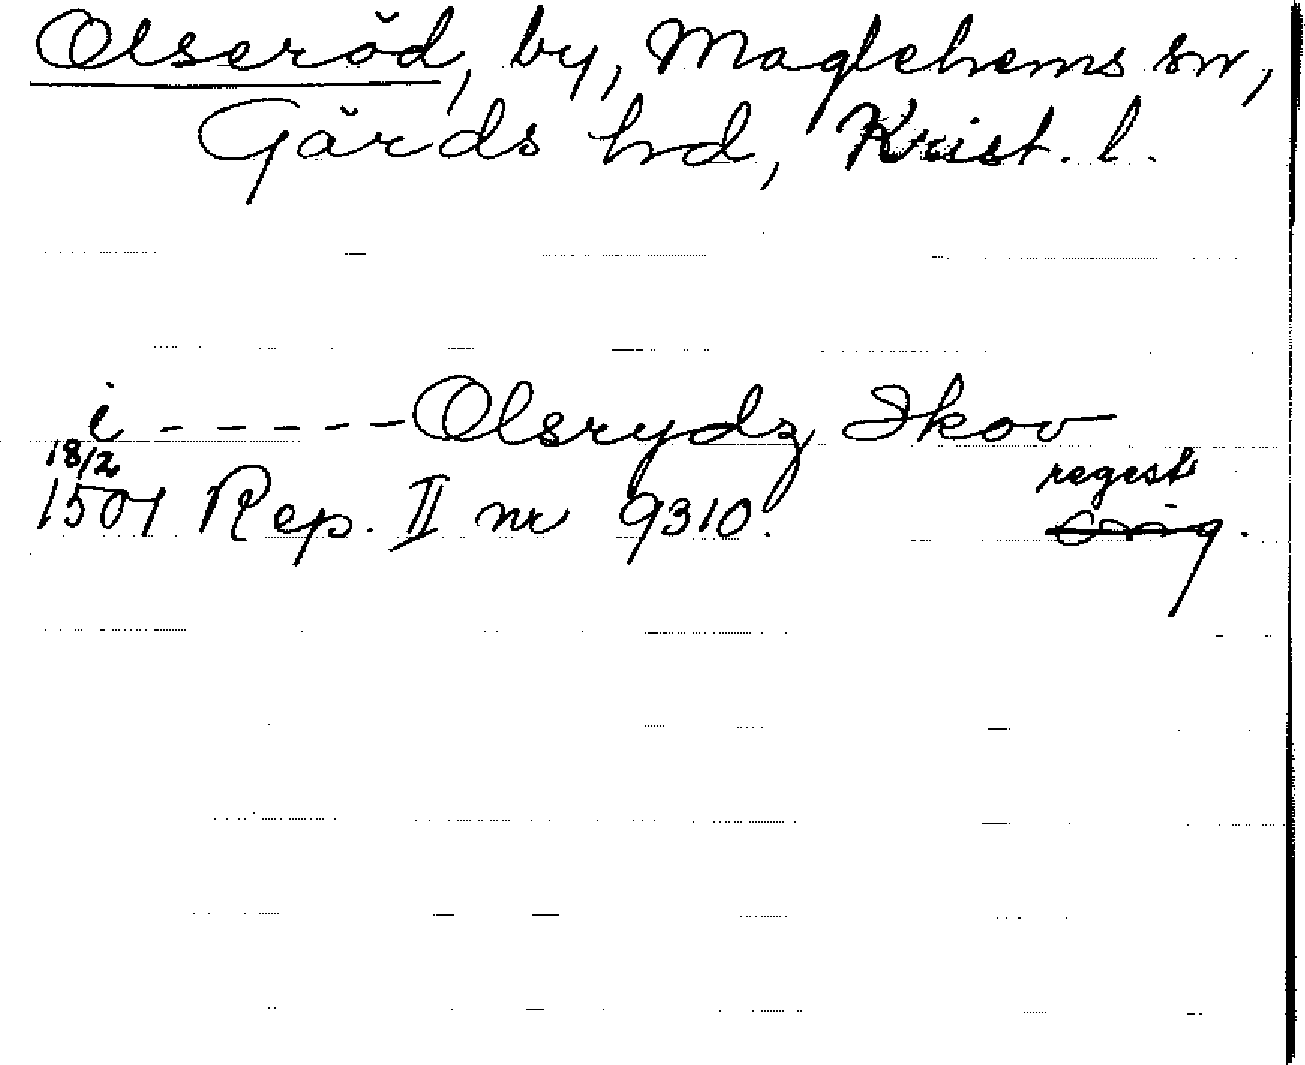 Olseröd, by, Maglehems sn,
Gärds hrd, Krist. l.
i - - - - - Olsrydz Skov
18/2 regest
1501 Rep. II nr 9310. orig.